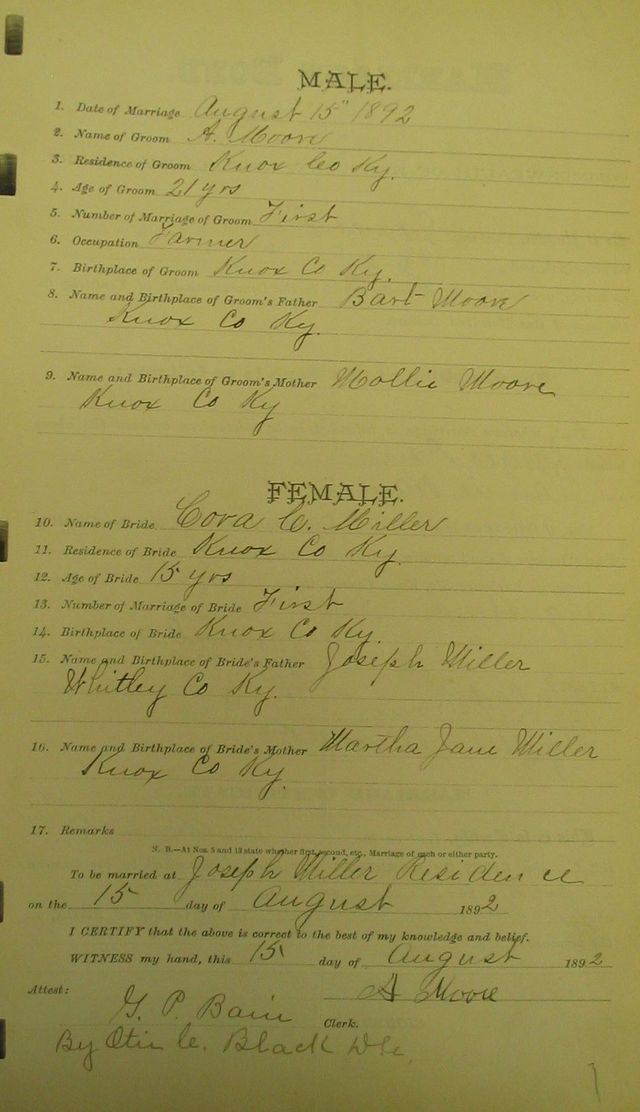 MALE.
1. Date of Marriage August 15" 1892
2. Name of Groom A. Moore
3. Residence of Groom Knox Co Ky.
4. Age of Groom 21 yrs
5. Number of Marriage of Groom First
6. Occupation Farmer
7. Birthplace of Groom Knox Co Ky.
8. Name and Birthplace of Groom's Father Bart Moore
Knox Co Ky.
9. Name and Birthplace of Groom's Mother Mollie Moore
Knox Co Ky
FEMALE.
10. Name of Bride Cova C. Miller
11. Residence of Bride Knox Co Ky.
12. Age of Bride 15 yrs
13. Number of Marriage of Bride First
14. Birthplace of Bride Knox Co Ky.
15. Name and Birthplace of Bride's Father Joseph Miller
Whitley Co Ky.
16. Name and Birthplace of Bride's Mother Martha Jane Miller
Knox Co Ky.
17. Remarks
N. B.—At Nos. 5 and 13 state whether first, second, etc., Marriage of each or either party.
To be married at Joseph Miller Residence
on the 15 day of August 1892
I CERTIFY that the above is correct to the best of my knowledge and belief.
WITNESS my hand, this 15 day of August 1892
A Moore
Attest:
G. P. Bain Clerk.
By Otis C. Black